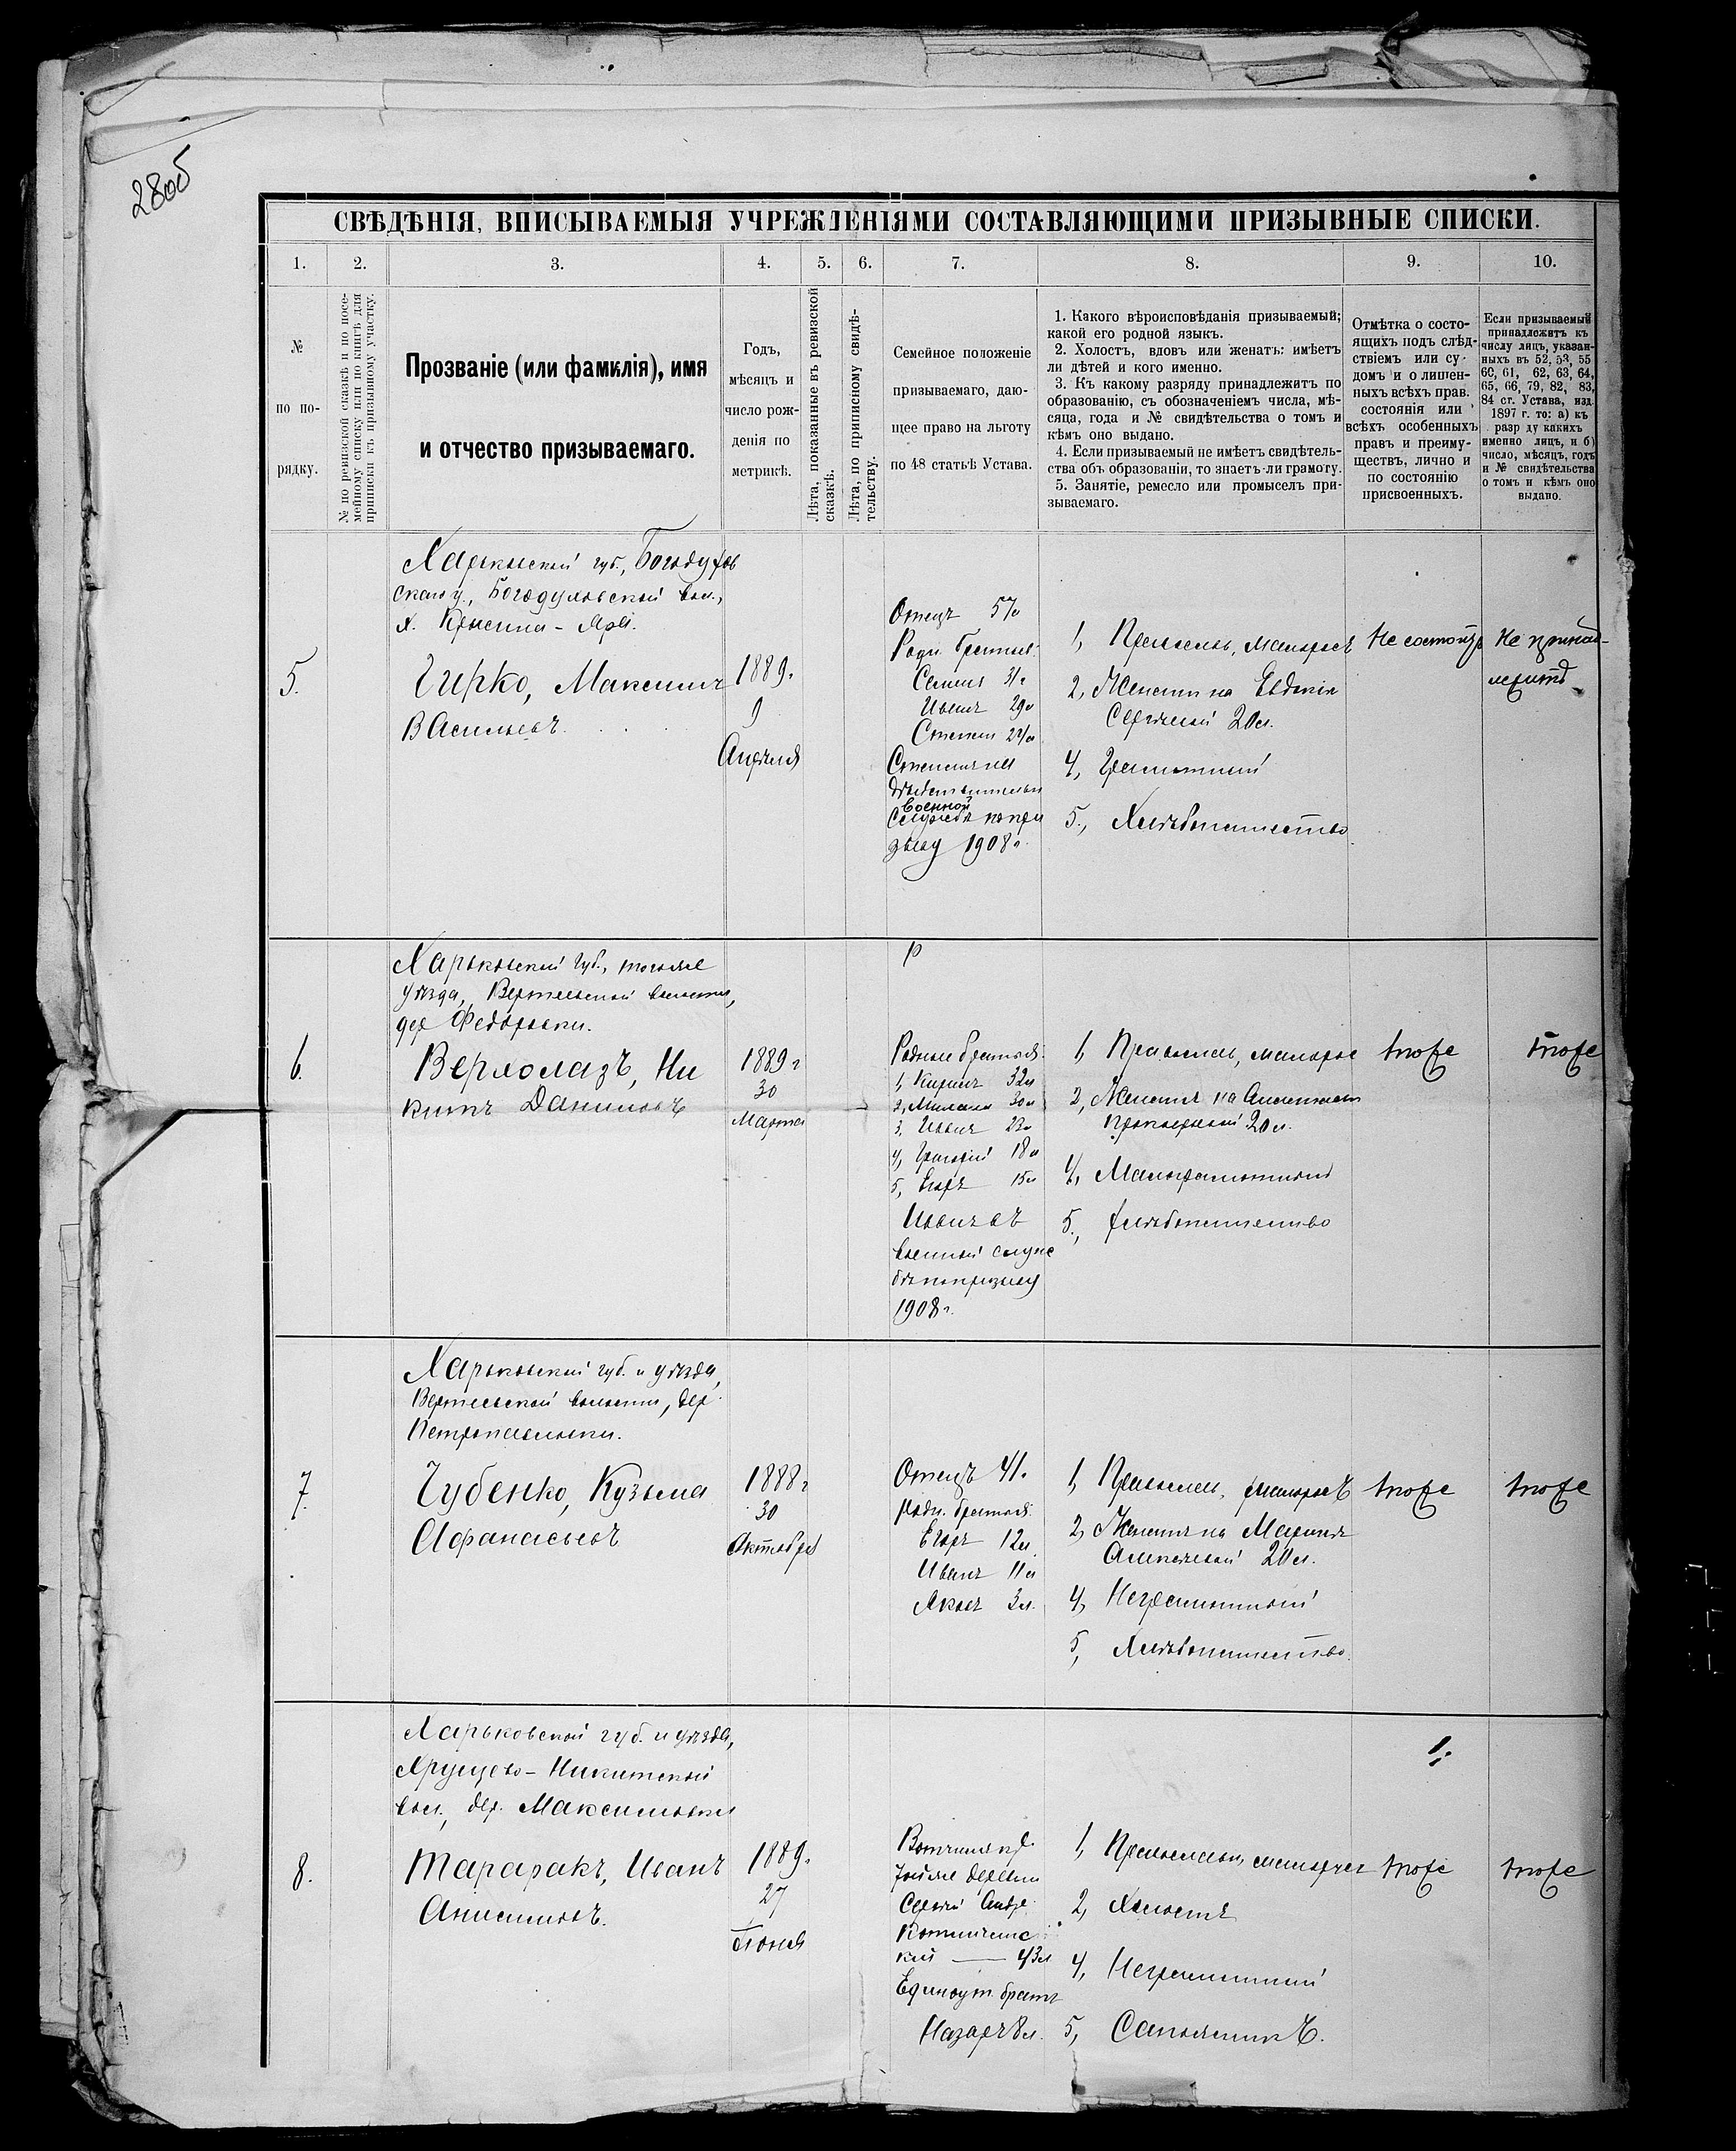 28об
СВѢДѢНІЯ, ВПИСЫВАЕМЫЯ УЧРЕЖДЕНІЯМИ СОСТАВЛЯЮЩИМИ ПРИЗЫВНЫЕ СПИСКИ.
1. 2. 3. 4. 5. 6. 7. 8. 9. 10.
№
по по-
рядку.
№ по ревизской сказкѣ и по посе-
мейному списку или по книгѣ для
приписки къ призывному участку.
Прозваніе (или фамилія), имя
и отчество призываемаго.
Годъ,
мѣсяцъ и
число рож-
денія по
метрикѣ.
Лѣта, показанные въ ревизской
сказкѣ.
Лѣта, по приписному свидѣ-
тельству.
Семейное положеніе
призываемаго, даю-
щее право на льготу
по 48 статьѣ Устава.
1. Какого вѣроисповѣданія призываемый;
какой его родной языкъ.
2. Холостъ, вдовъ или женатъ: имѣетъ
ли дѣтей и кого именно.
3. Къ какому разряду принадлежитъ по
образованію, съ обозначеніемъ числа, мѣ-
сяца, года и № свидѣтельства о томъ и
кѣмъ оно выдано.
4. Если призываемый не имѣетъ свидѣтель-
ства объ образованіи, то знаетъ-ли грамоту.
5. Занятіе, ремесло или промыселъ при-
зываемаго.
Отмѣтка о состо-
ящихъ подъ слѣд-
ствіемъ или су-
домъ и о лишен-
ныхъ всѣхъ прав.
состоянія или
всѣхъ особенныхъ
правъ и преиму-
ществъ, лично и
по состоянію
присвоенныхъ.
Если призываемый
принадлежитъ къ
числу лицъ, указан-
ныхъ въ 52, 53, 55
60, 61, 62, 63, 64,
65, 66, 79, 82, 83,
84 ст. Устава, изд.
1897 г. то: а) къ
разр ду какихъ
именно лицъ, и б)
число, мѣсяцъ, годъ
и № свидѣтельства
о томъ и кѣмъ оно
выдано.
Харьковской губ., Богодухов
скаго у., Богодуховской вол.,
х.
5.
Гирко, Максимъ
Васильевъ.
1889г.
9
Апрѣля
Отецъ 57л
Родн. братья:
Семенъ 31г
Иванъ 29л
Степанъ 22л
Степанъ на
дѣйствительн
военной
службѣ по при
зыву 1908г.
1, Православн, малоросъ
2, Женатъ на Евдокіи
Сергѣевой 20л.
4, Грамотный
5., Хлѣбопашество
Не состоитъ
Не принад-
лежитъ
Харьковской губ., тогоже
уѣзда, Вертеевской волости,
дер Федоровки.
6.
Верхолазъ, Ни
китъ Даниловъ
1889г
30
Марта
Родные братья:
1, Кирилъ 32л
2, 30л
3, Иванъ 22л
4, Григорій 18л
5, Егоръ 15л
Иванъ въ
военной служ
бѣ по призыву
1908г.
1, Православн, малорос
2, Женатъ на
Прокофьевой 20л.
4, Малограмотный
5., хлѣбопашество
тоже
тоже
Харьковской губ. и уѣзда,
Вертеевской волости, дер.
Петропавловки.
7.
Губенко, Кузьма
Афанасьевъ
1888г
30
Октября
Отецъ 41г.
родн. братья:
Егоръ 12л.
Иванъ 11л
Яковъ 3л.
1, Православн, малоросъ
2, Женатъ на Маринѣ
Алексѣевой 20л.
4, Неграмотный
5, Хлѣбопашество.
тоже
тоже
Харьковской губ. и уѣзда,
Хрущево-Никитской
вол., дер. Максимовки
8.
Тараракъ, Иванъ
Анисимовъ.
1889г.
27
Іюня
Вотчимъ кр.
тойже деревни
Сергѣй Андр.
кій — 43л
Единоут. братъ
Назаръ 8л.
1, Православн, малоросъ
2, Холостъ
4, Неграмотный
5, Сапожникъ.
тоже
тоже